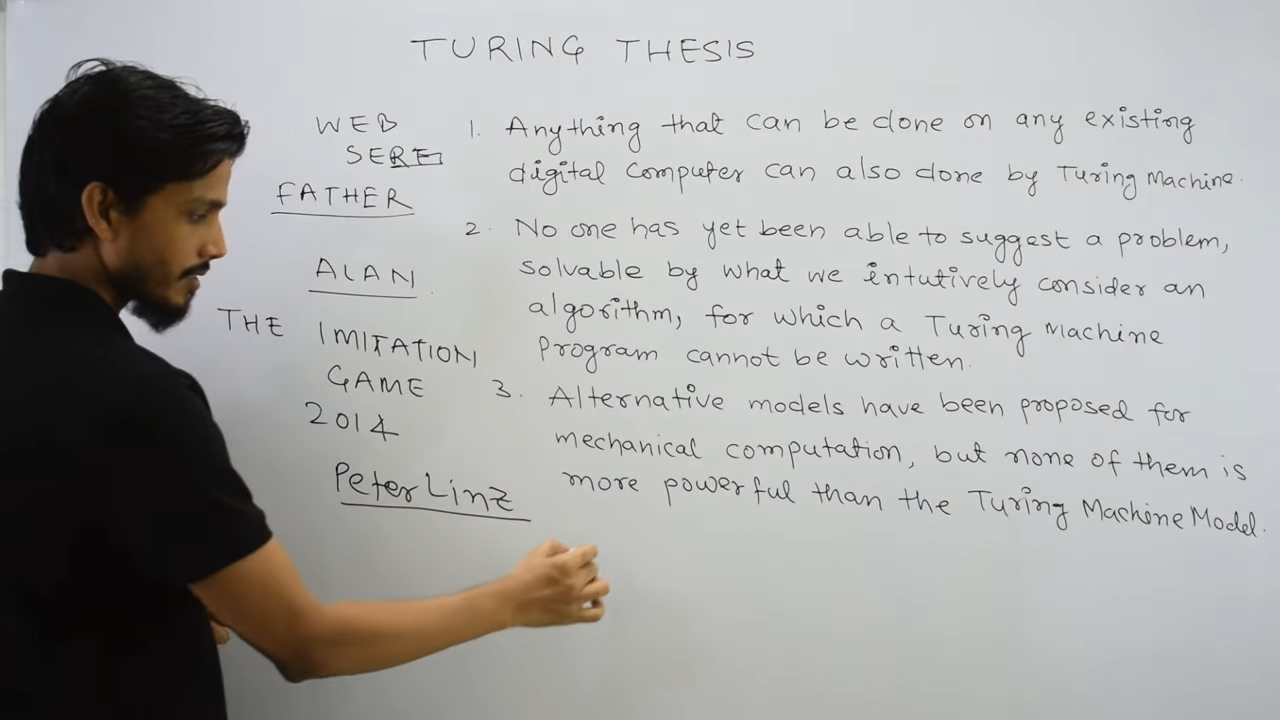 TURING THESIS
WEB
SERE
FATHER
ALAN
THE IMITATION
GAME
2014
Peter Linz
1. Anything that can be done on any existing
digital computer can also done by Turing Machine.
2. No one has yet been able to suggest a problem,
solvable by what we intutively consider an
algorithm, for which a Turing Machine
Program cannot be written.
3. Alternative models have been proposed for
mechanical computation, but none of them is
more powerful than the Turing Machine Model.